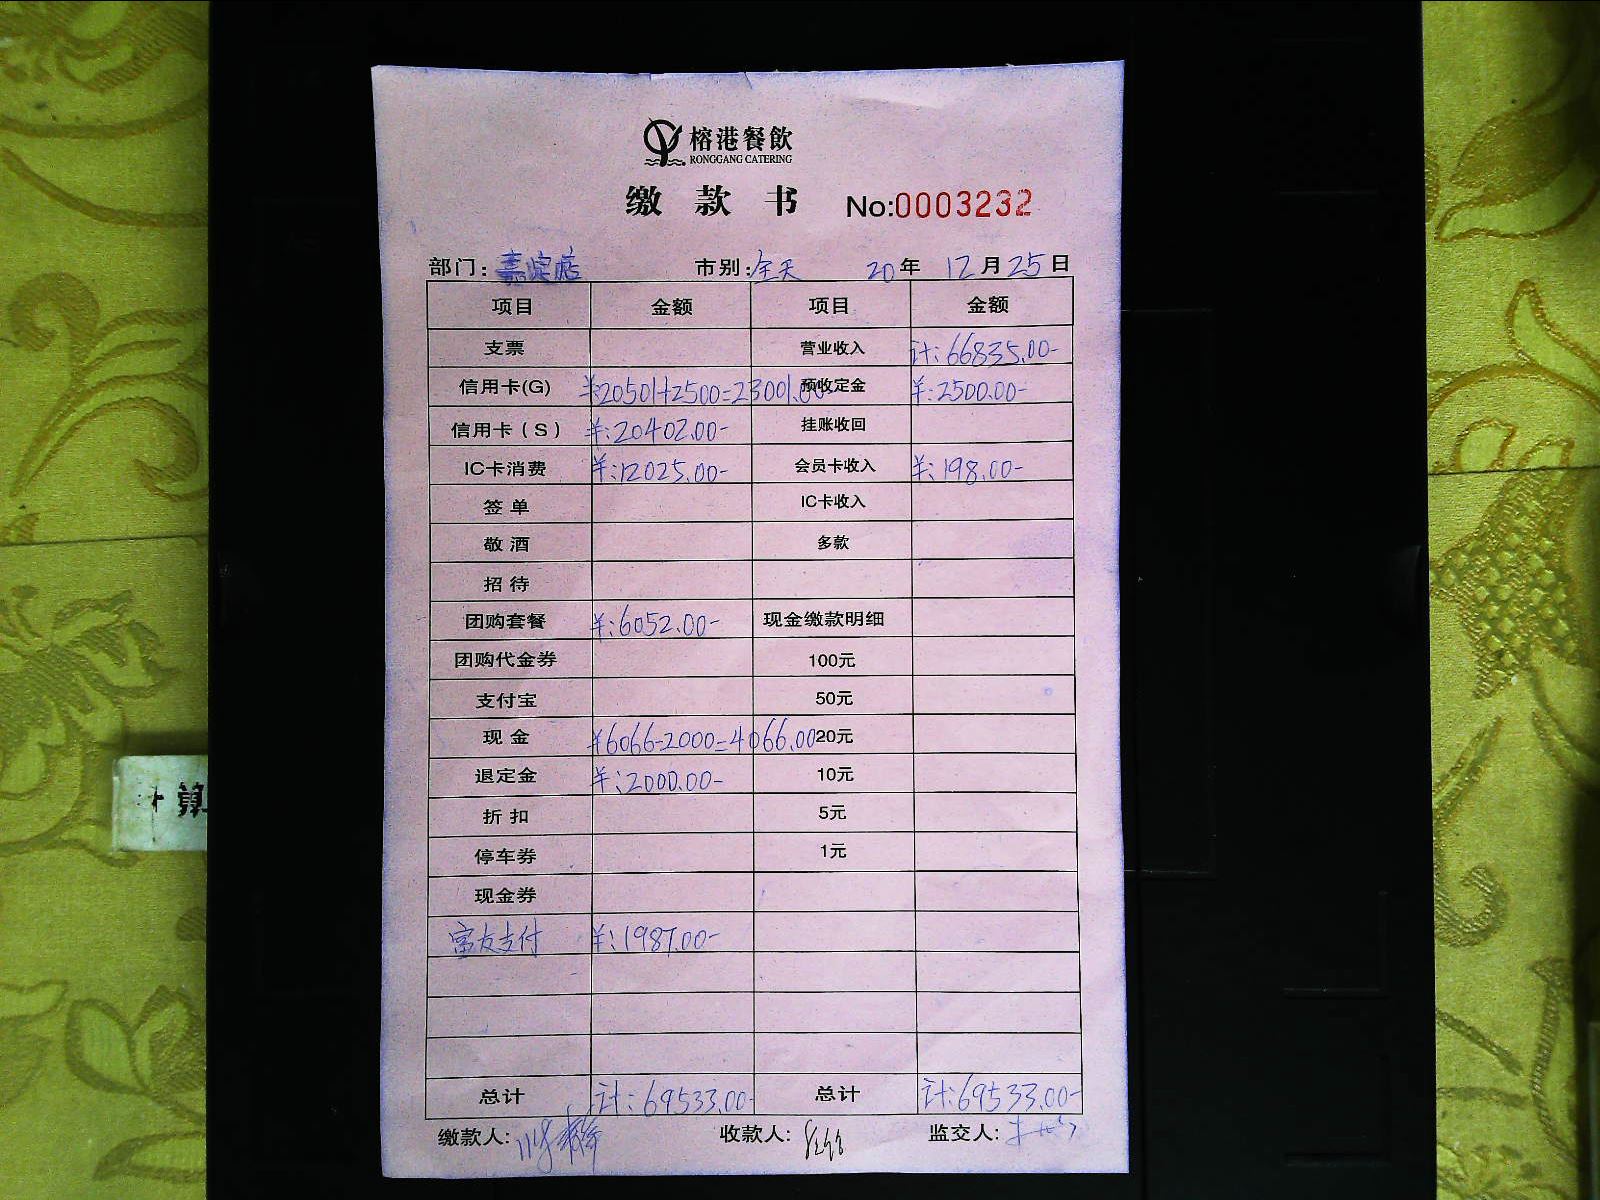 榕港餐飲
RONGGANG CATERING
缴款书 No:0003232
部门: 嘉定店 市别: 全天 20年 12月25日
项目 金额 项目 金额
支票 营业收入 计:66835.00-
信用卡(G) ¥20501+2500=23001.00 预收定金 ¥:2500.00-
信用卡(S) ¥:20402.00- 挂账收回
IC卡消费 ¥:12025.00- 会员卡收入 ¥:198.00-
签单 IC卡收入
敬酒 多款
招待
团购套餐 ¥:6052.00- 现金缴款明细
团购代金券 100元
支付宝 50元
现金 ¥6066-2000=4066.00 20元
退定金 ¥:2000.00- 10元
折扣 5元
停车券 1元
现金券
富友支付 ¥:1987.00-
总计 计:69533.00- 总计 计:69533.00-
缴款人: 收款人: 监交人:
计算